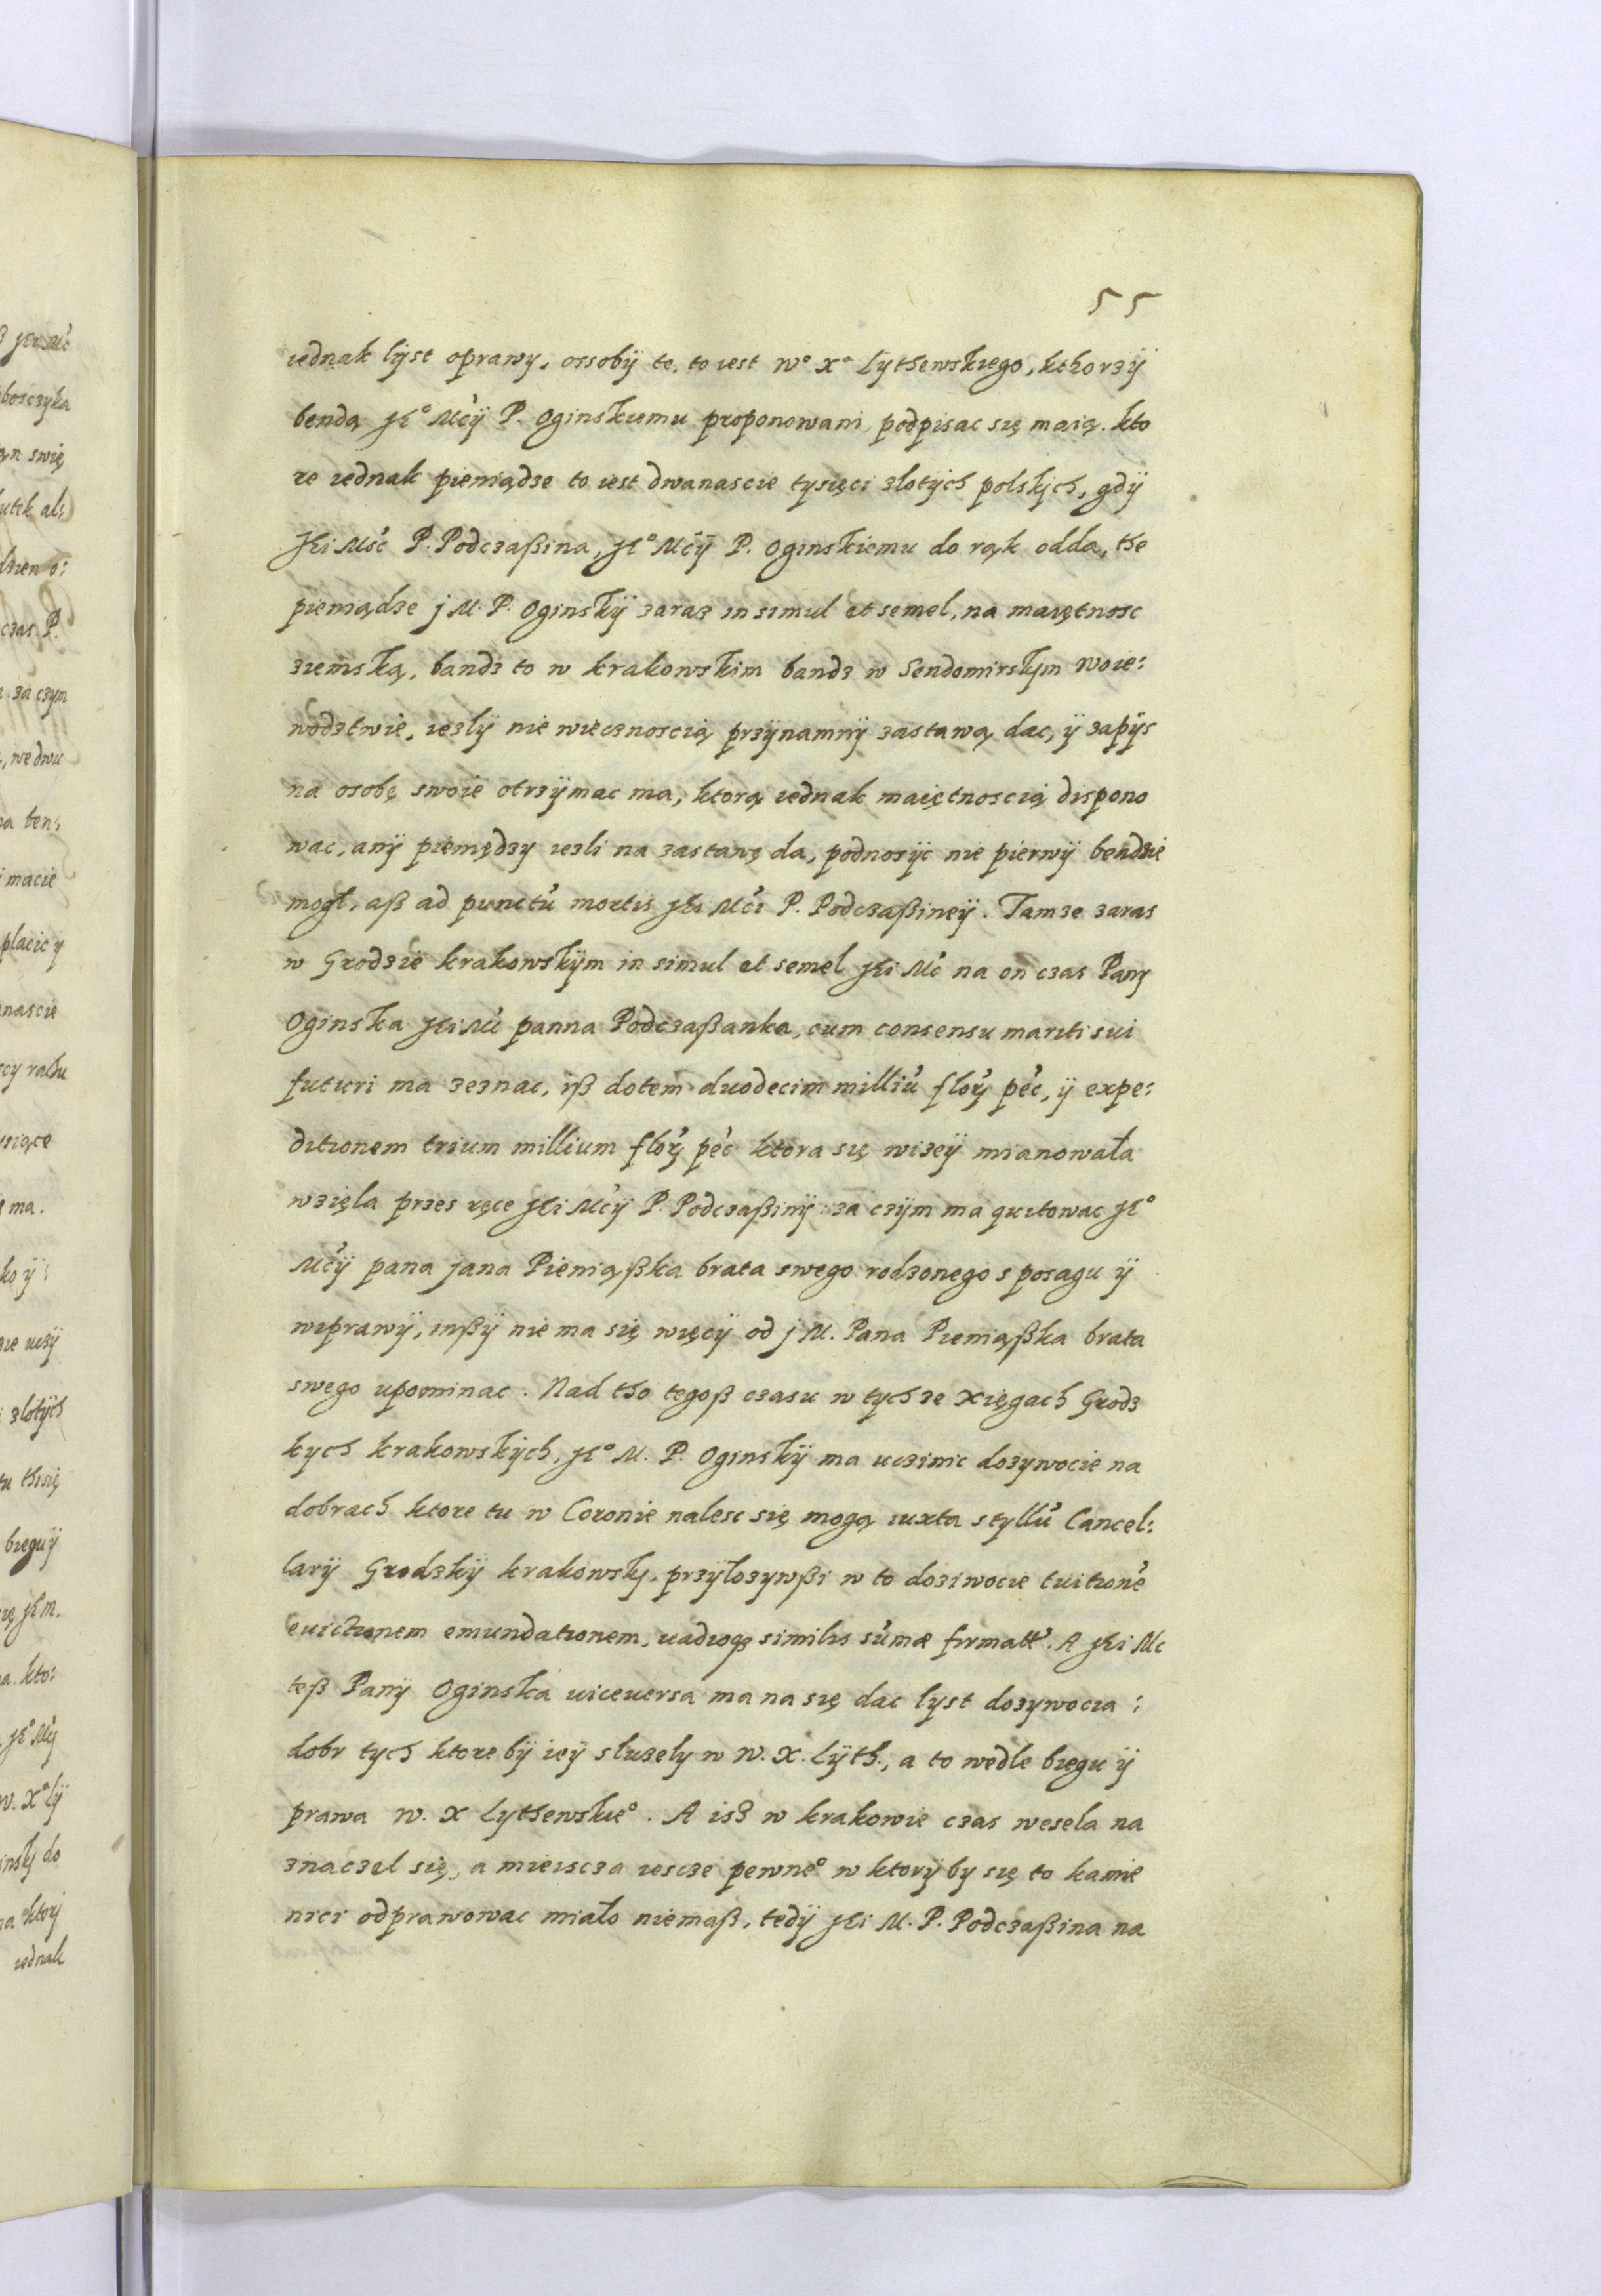 55
iednak lÿst oprawy, ossobÿ te, to iest Wº Xª Lythewskiego, kthorzÿ
bendą JEº Mćÿ P. Oginskiemu proponowani podpisac się maią. kto
re iednak pieniądze to iest dwanascie tysięci złotÿch polskych, gdÿ
JEi Mśc P. Podczaßina, JEº Mćÿ P. Oginskiemu do rąk odda, the
pieniądze j M. P. Oginskÿ zaraz in simul et semel, na maiętnosc
ziemską, bandz to w krakowskim bandz w Sendomirskym Woie:
wodztwie, iezlÿ nie wiecznoscią przÿnamnÿ zastawą dac, ÿ zapÿs
na osobę swoie otrzÿmac ma, ktorą iednak maiętnoscią dispono
wac, anÿ pieniędzy iezli na zastawę da, podnosÿc nie pierwÿ bendzie
mogł, aß ad punctu mortis JEi Mći P. Podczaßineÿ. Tamze zaras
w Grodzie krakowskÿm in simul et semel JEi Mć na on czas Pany
Oginska JEi Mć panna Podczaßanka, cum consensu mariti sui
futuri ma zeznac, iß dotem duodecim milliu flor pec, ÿ expe:
ditionem trium millium flor pec ktora się wizeÿ mianowała
wzięla przes ręce JEi Mćÿ P. Podczaßinÿ: za czÿm ma quitowac JEº
Mćÿ pana jana Pieniąßka brata swego rodzonego s posagu ÿ
wiprawÿ, inßÿ nie ma się więcÿ od j M. Pana Pieniąßka brata
swego upominac. Nad tho tegoß czasu w tychze xięgach Grodz
kych krakowskÿch, JEº M. P. Oginskÿ ma uczinic dozywocie na
dobrach ktore tu w Coronie nalesc się mogą iuxta styllu Cancel:
larÿ Grodzkÿ krakowsky, przÿlozywßi w to doziwocie tuitione
euictionem emundationem, uadioqз similis sumæ firmatt. A JEi Mc
teß Panÿ Oginska uiceuersa ma na się dac lyst dozywocia:
dobr tych ktore bÿ ieÿ sluzely w W. X. Lÿth., a to wedle biegu ÿ
prawa W. X Lythewskieº. A isz w krakowie czas wesela na
znaczel się, a mieiscza iescze pewneº w ktorÿ by się to kamie
nici odprawowac miało niemaß, tedÿ JEi M. P. Podczaßina na